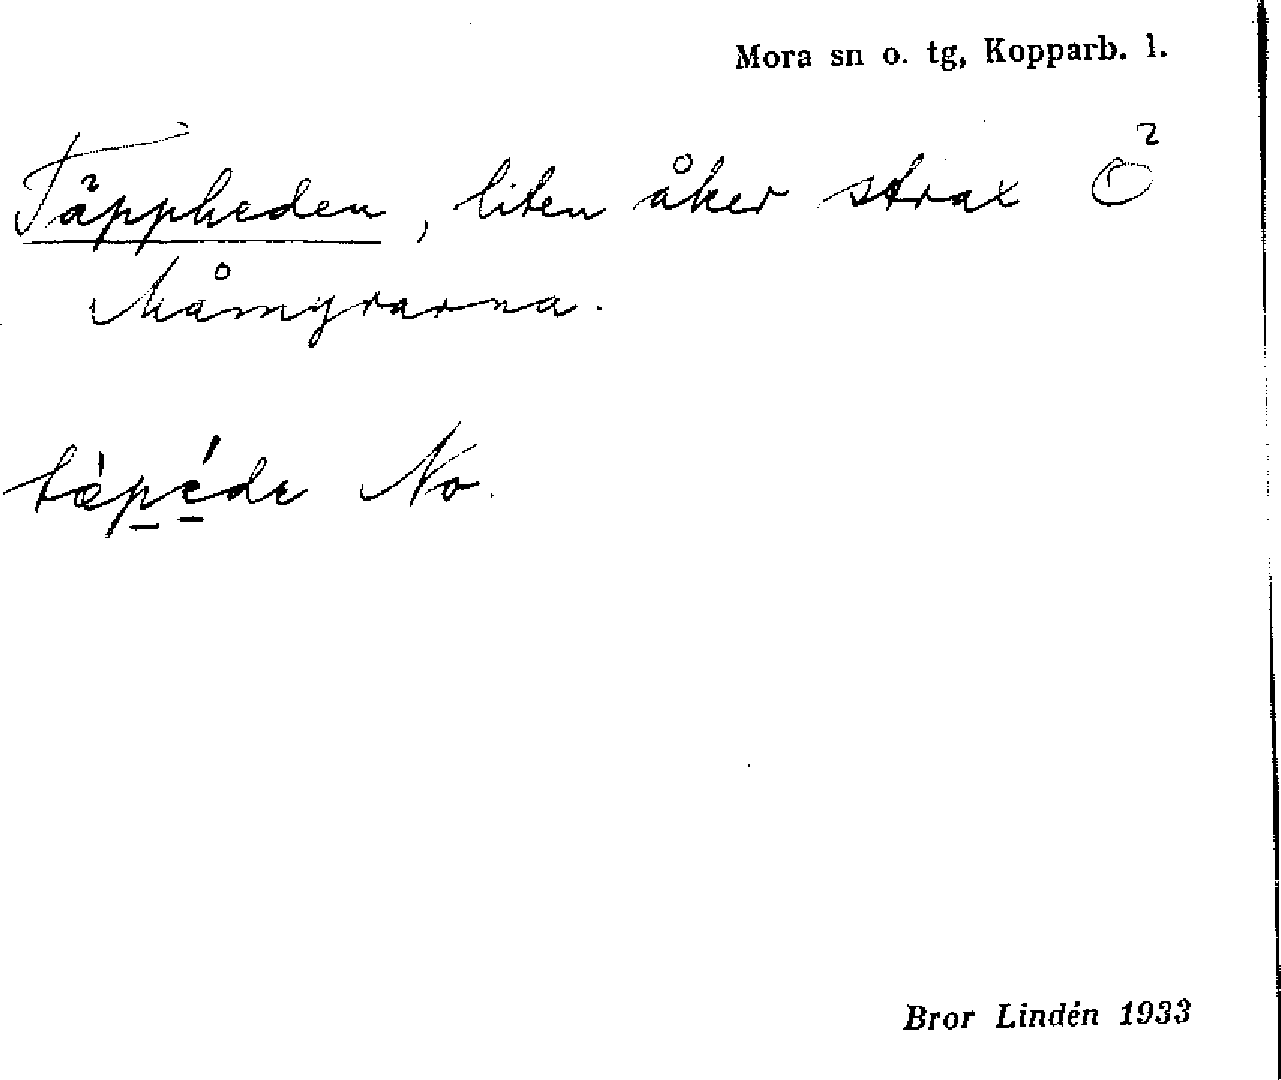 Mora sn o. tg, Kopparb. l.
Täppheden, liten åker strax Ö
Måmyrarna.
tæ̀péde No.
Bror Lindén 1933